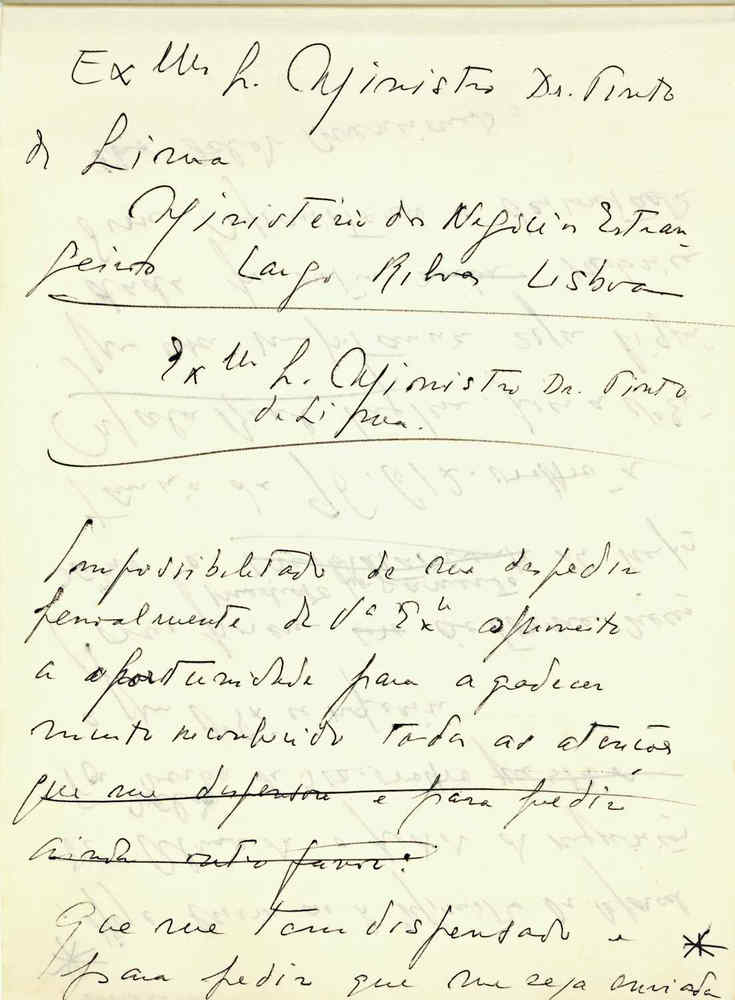 Exmº Sr. Ministro Dr. Pinto
de Lima
Ministério dos Negócios Estran-
geiros Largo Rilvas Lisboa
Exmº Sr. Ministro Dr. Pinto
de Lima.
Impossibilitado de me despedir
pessoalmente de Vª Exª aproveito
a oportunidade para agradecer
muito reconhecido todas as atenções
que me dispensou e para pedir
ainda outro favor:
Que me tem dispensado e *
para pedir que me seja enviada